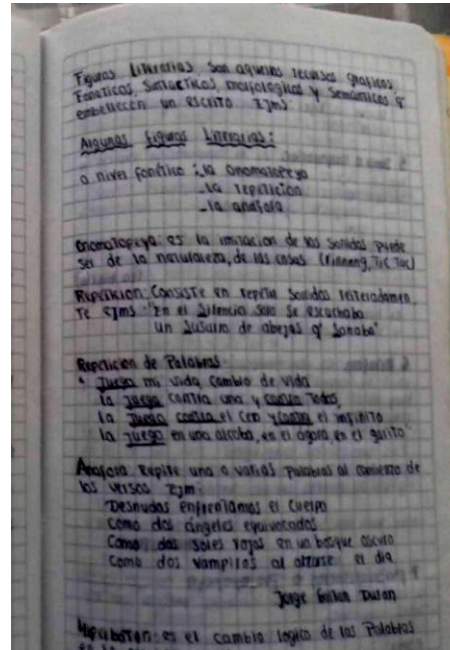 Figuras Literarias son aquellos recursos graficos,
Foneticos, Sintacticos, morfologicos y Semanticos q'
embellecen un escrito Ejms:
Algunas Figuras Literarias:
a nivel fonético: la onomatopeya
_la repeticion
_la anafora
Onomatopeya: es la imitacion de los sonidos puede
ser de la naturaleza, de las cosas (rinnnng, Tic Tac)
Repeticion: Consiste en repetir sonidos reiteradamen
Te Ejms: "En el silencio solo se escuchaba
un susurro de abejas q' sonaba"
Repeticion de Palabras:
Juego mi vida, cambio de vida
la juego contra una y contra todos,
la juego contra el cero y contra el infinito
la juego en una alcoba, en el ágora, en el garito"
Anafora: Repite una o varias palabras al comienzo de
los versos Ejm:
Desnudos enfrentamos el cuerpo
Como dos ángeles equivocados
Como dos soles rojos en un bosque oscuro
Como dos vampiros al alzarse el dia
Jorge Gaitan Duran
Hiperbaton: es el cambio logico de las Palabras